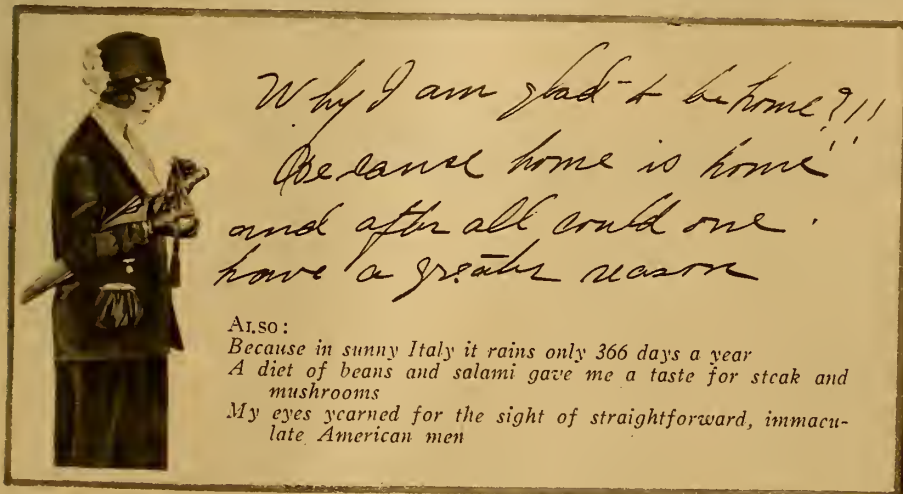 Why I am glad to be home?!!
Because home is home"
and after all could one
have a greater reason
ALSO:
Because in sunny Italy it rains only 366 days a year
A diet of beans and salami gave me a taste for steak and
mushrooms
My eyes yearned for the sight of straightforward, immacu-
late American men